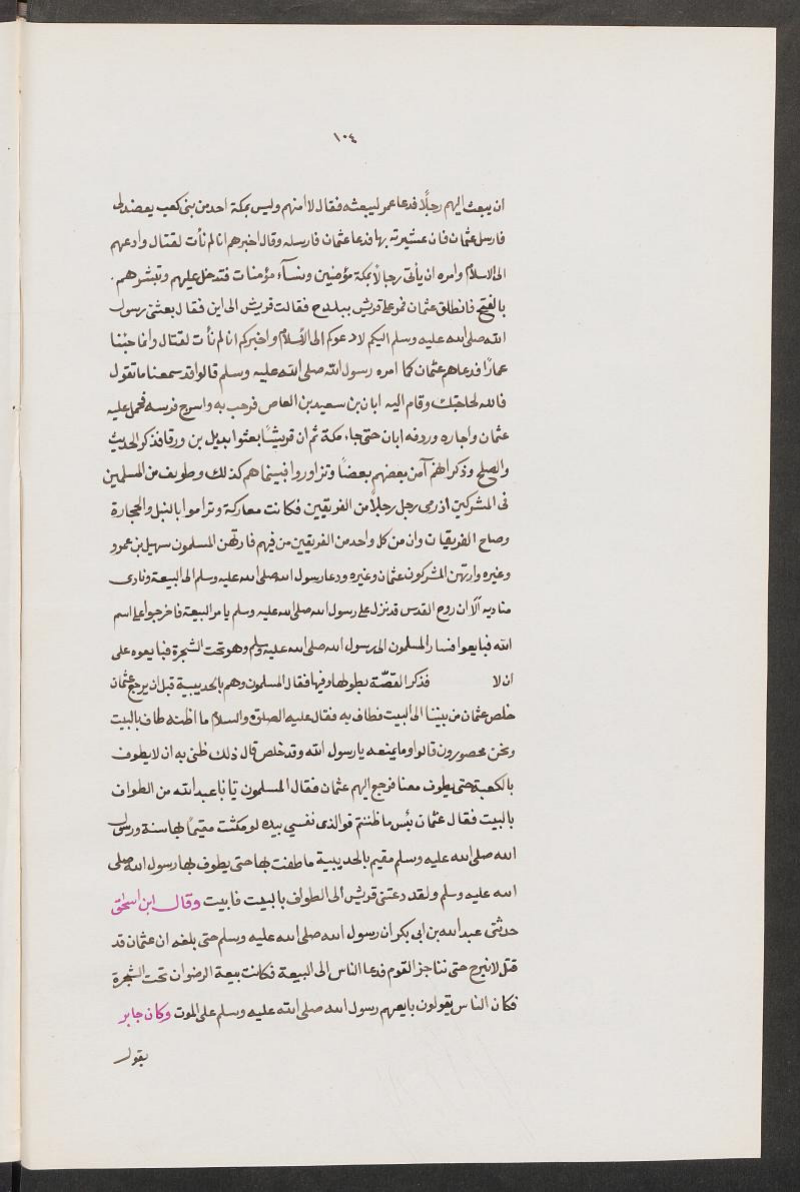 ١٠٤
ان يبعث اليهم رجلًا فدعا عمر ليبعثه فقال لا امنهم وليس بمكة احد من بنى كعب يعضد لى
فارسل عثمان فان عشيرته بها فدعا عثمان فارسله وقال اخبرهم انا لم نأت لقتال وادعهم
الى الاسلام وامره ان يأتى رجالا بمكة مؤمنين ونسآء مؤمنات فتدخل عليهم وتبشرهم .
بالفتح فانطلق عثمان فمر على قريش ببلدح فقالت قريش الى اين فقال بعثنى رسول
الله صلى الله عليه وسلم اليكم لادعوكم الى الاسلام واخبركم انا لم نأت لقتال وانما جئنا
عمارًا فدعاهم عثمان كما امره رسول الله صلى الله عليه وسلم قالوا قد سمعنا ما تقول
فانفد لحاجتك وقام اليه ابان بن سعيد بن العاص فرحب به واسرج فرسه فحمل عليه
عثمان واجاره وردفه ابان حتى جاء مكة ثم ان قريشًا بعثوا بديل بن ورقا فذكر الحديث
والصلح وذكر انهم آمن بعضهم بعضًا وتزاوروا فبينما هم كذلك وطويف من المسلمين
فى المشركين اذ رمى رجل رجلًا من الفريقين فكانت معاركة وتراموا بالنبل والحجارة
وصاح الفريقات وان من كل واحد من الفريقين من فيهم فارتهن المسلمون سهيل بن عمرو
وغيره وارتهن المشركون عثمان وغيره ودعا رسول الله صلى الله عليه وسلم الى البيعة ونادى
مناديه ألا ان روح القدس قد نزل على رسول الله صلى الله عليه وسلم يامر البيعة فاخرجوا على اسم
الله فبايعوا فسار المسلمون الى رسول الله صلى الله عليه وسلم وهو تحت الشجرة فبايعوه على
ان لا فذكر القصّة بطولها وفيها فقال المسلمون وهم بالحديبية قبل ان يرجع عثمان
خلص عثمان من بيننا الى البيت فطاف به فقال عليه الصلاة والسلام ما اظنه طاف بالبيت
ونحن محصورون قالوا وما يمنعه يا رسول الله وقد خلص قال ذلك ظنى به ان لا يطوف
بالكعبة حتى يطوف معنا فرجع اليهم عثمان فقال المسلمون يا ابا عبد الله من الطواف
بالبيت فقال عثمان بئس ما ظننتم فو الذى نفسي بيده لو مكثت مقيمًا بها سنة ورسول
الله صلى الله عليه وسلم مقيم بالحديبية ما طفت بها حتى يطوف بها رسول الله صلى
الله عليه وسلم ولقد دعتنى قريش الى الطواف بالبيت فابيت وقال ابن اسحق
حدثنى عبد الله بن ابى بكر ان رسول الله صلى الله عليه وسلم حتى بلغه ان عثمان قد
قتل لا نبرح حتى نناجز القوم فدعا الناس الى البيعة فكانت بيعة الرضوان تحت الشجرة
فكان الناس يقولون بايعهم رسول الله صلى الله عليه وسلم على الموت وكان جابر
يقول